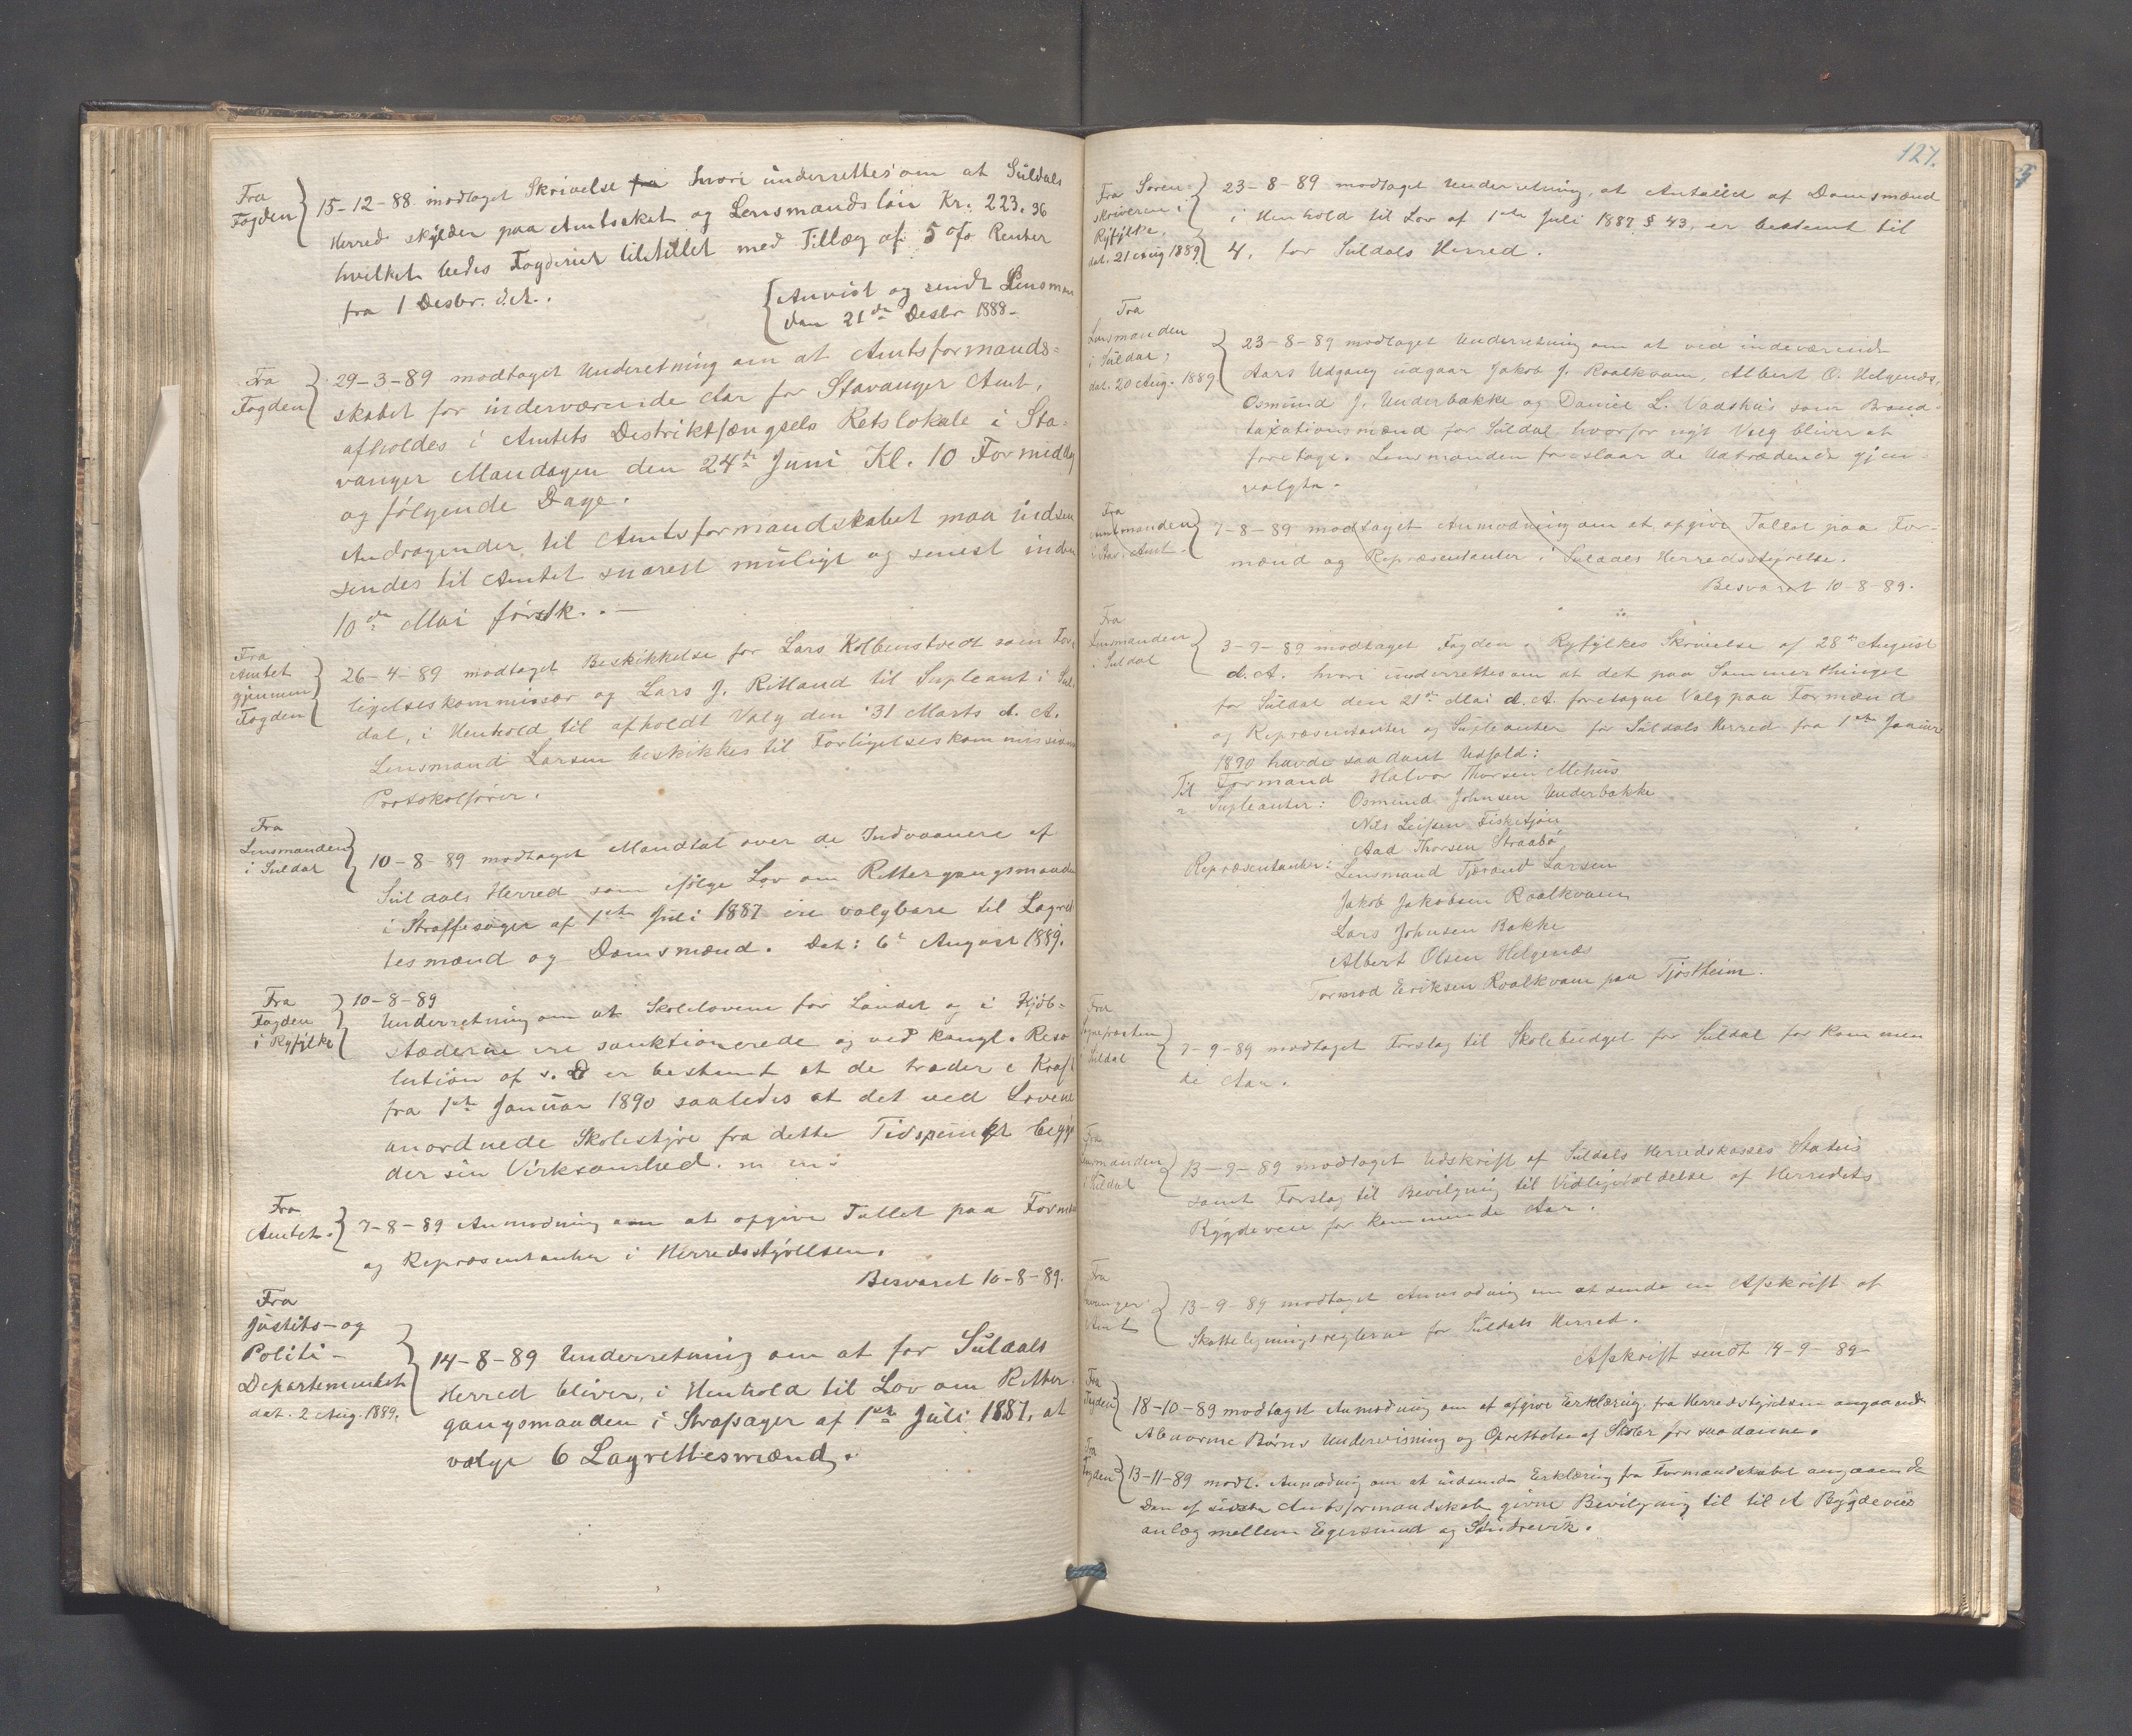 Fra
Fogden
15-12-88 modtaget Skrivelse fra hvori underrettes om at Suldals
Herred skylder paa Amtsskat og Lensmandsløn Kr. 223.36
hvilket bedes Fogderiet tilstillet med Tillæg af 5 % Renter
fra 1 Desbr. d.A..
Anvist og sendt Lensman
den 21de Desbr 1888-
Fra
Fogden
29-3-89 modtaget Underetning om at Amtsformands-
skabet for inderværende Aar for Stavanger Amt,
afholdes i Amtets Distriktsfængsels Retslokale i Sta-
vanger Mandagen den 24de Juni Kl. 10 Formiddag
og følgende Dage.
Andragender til Amtsformandskabet maa indsen
sendes til Amtet snarest muligt og senest inden
10de Mai førstk..-
Fra
Amtet
gjennem
Fogden
26-4-89 modtaget Beskikkelse for Lars Kolbenstvedt som For-
ligelseskommissær og Lars J. Ritland til Supleant i Sul-
dal, i Henhold til afholdt Valg den 31 Marts d. A.
Lensmand Larsen beskikkes til Forligelseskommissionens
Protokolfører.
Fra
Lensmanden
i Suldal
10-8-89 modtaget Mandtal over de Indvaanere af
Suldals Herred som ifølge Lov om Rettergangsmaaden
i Straffesager af 1ste Juli 1887 ere valgbare til Lagret
tesmænd og Domsmænd. Dat: 6te August 1889.
Fra
Fogden
i Ryfylke
10-8-89
Underretning om at Skolelovene for Landet og i Kjøb-
stæderne ere sanktionerede og ved kongl. Reso
lution af s. D er bestemt at de træder i Kraft
fra 1ste Januar 1890 saaledes at det ved Lovene
anordnede Skolestyre fra dette Tidspunkt begyn
der sin Virksomhed. m m:
Fra
Amtet.
7-8-89 Anmodning om at opgive Tallet paa Formænd
og Repræsentanter i Herredsstyrelsen.
Besvaret 10-8-89.
Fra
Justits- og
Politi-
Departementet
dat. 2 Aug. 1889.
14-8-89 Underretning om at for Suldals
Herred bliver, i Henhold til Lov om Retter
gangsmaaden i Strafsager af 1ste Juli 1887, at
vælge 6 Lagrettesmænd.
127.
Fra Soren-
skriveren i
Ryfylke,
dat. 21 Aug 1889
23-8-89 modtaget Underretning, at Antallet af Domsmænd
i Henhold til Lov af 1ste Juli 1887 § 43, er bestemt til
4, for Suldals Herred.
Fra
Lensmanden
i Suldal,
dat. 20 Aug. 1889
23-8-89 modtaget Underretning om at ved indeværende
Aars Udgang udgaar Jakob J. Roalkvam, Albert O. Helgenæs,
Osmund J. Underbakke og Daniel L. Vadshus som Brand-
taxationsmænd for Suldal, hvorfor nyt Valg bliver at
foretage. Lensmanden foreslaar de Udtrædende gjen-
valgte.
Fra
Amtmanden
i Stav. Amt.
7-8-89 modtaget Anmodning om at opgive Tallet paa For-
mænd og Repræsentanter i Suldals Herredsstyrelse.
Besvaret 10-8-89.
Fra
Lensmanden
i Suldal
3-9-89 modtaget Fogden i Ryfylkes Skrivelse af 28de August
d. A. hvori underrettes om at det paa Sommerthinget
for Suldal den 21de Mai d. A. foretagne Valg paa Formænd
og Repræsentanter og Supleanter for Suldals Herred fra 1ste Januar
1890 havde saadant Udfald:
Til Formand Halvor Thorsen Mehus
" Supleanter: Osmund Johnsen Underbakke
Nils Leifsen Fisketjøn
Aad Thorsen Straabø
Repræsentanter: Lensmand Tjerand Larsen
Jakob Jakobsen Roalkvam
Lars Johnsen Bakke
Albert Olsen Helgenæs
Tormod Eriksen Roalkvam paa Tjøstheim.
Fra
Sognepresten
i Suldal
7-9-89 modtaget Forslag til Skolebudget for Suldal for kommen
de Aar.
Fra
Lensmanden
i Suldal
13-9-89 modtaget Udskrift af Suldals Herredskasses Status
samt Forslag til Bevilgning til Vedligeholdelse af Herredets
Bygdeveie for kommende Aar.
Fra
Stavanger
Amt
13-9-89 modtaget Anmodning om at sende en Afskrift af
Skatteligningsreglerne for Suldals Herred.
Afskrift sendt 14-9-89-
Fra
Fogden
18-10-89 modtaget Anmodning om at afgive Erklæring fra Herredsstyrelsen angaaende
Abnorme Børns Undervisning og Oprettelse af Skoler for saadanne.
Fra
Fogden
13-11-89 modt. Anmodning om at indsende Erklæring fra Formandskabet angaaende
den af sidste Amtsformandskab givne Bevilgning til til et Bygdevei
anlæg mellem Egersund og Søndrevik.